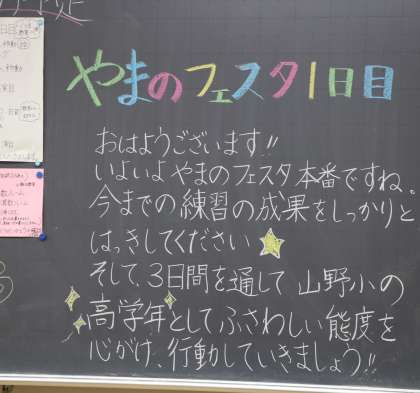 やまのフェスタ1日目
おはようございます!!
いよいよやまのフェスタ本番ですね、
今までの練習の成果をしっかりと
はっきしてください
そして、3日間を通して山野小の
高学年としてふさわしい態度を
心がけ、行動していきましょう!!